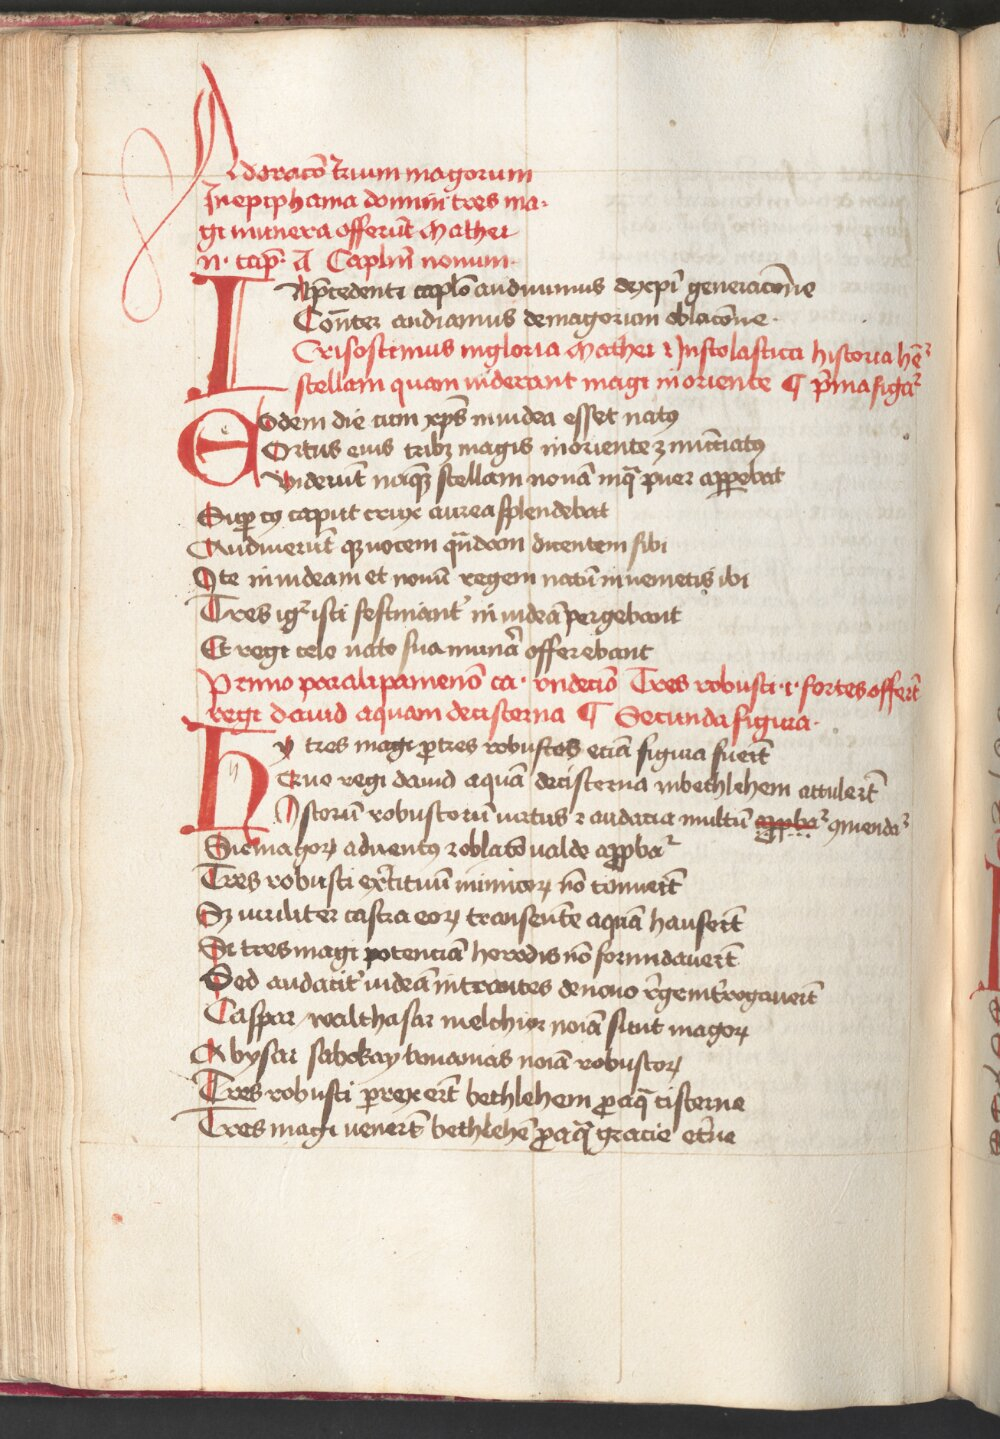 Adoracō trium magorum
In epiphania domini tres ma-
gi munera offerūt Mathei
ii. cap̄. Caplm̄ nonum.
In p̄cedenti caplo audiuimus de xp̄i generacōne
Cōn̄ter audiamus de magorum oblacōne.
Crisostimus in glosa Mathei ⁊ In scolastica historia hēr
stellam quam viderant magi in oriente ¶ p̄ma figa
Eodem die cum xp̄s in iudea esset natꝰ
Ortus eius tribꝫ magis in oriente ꝫ nūcciatꝰ
Viderūt naqꝫ stellam nouā in q̄ puer apparebat
Suꝑ cꝰ caput crux aurea splendebat
Audiuerūt qꝫ vocem quādam dicentem sibi
Ite in iudeam et nouū regem natū inuenietis ibi
Tres igr̄ isti festinant̄ in iudeā pergebant
Et regi celo nato sua munā offerebant
Primo paralipamenō ca. vndecīo Tres robusti .i. fortes offerūt
regi dauid aquam de cisterna ¶ Secunda figura.
Hy tres magi ꝑ tres robustos eciā figura fuerūt
Que regi dauid aquā de cisterna in bethlehem attulerūt
Istorū robustorū virtus ⁊ audacia multū appba᷑ ꝯmenda᷑
Sic magoꝝ aduentꝰ ⁊ oblacō valde appba᷑
Tres robusti exercituū inimicoꝝ nō timuerūt
Sꝫ viriliter castra eoꝝ transeūte aquā hauserūt
Si tres magi potenciā herodis nō formidauerūt
Sed audacit̄ iudeā intrantes de nouo rege int̄rogauerūt
Caspar walthasar melchior noīa sūt magoꝝ
Abysai sabokay banaias noīa robustoꝝ
Tres robusti ꝑrexerūt bethlehem ꝓ aq̄ cisterne
Tres magi venerūt bethlehē ꝓ aq̄ gracie et̄ne